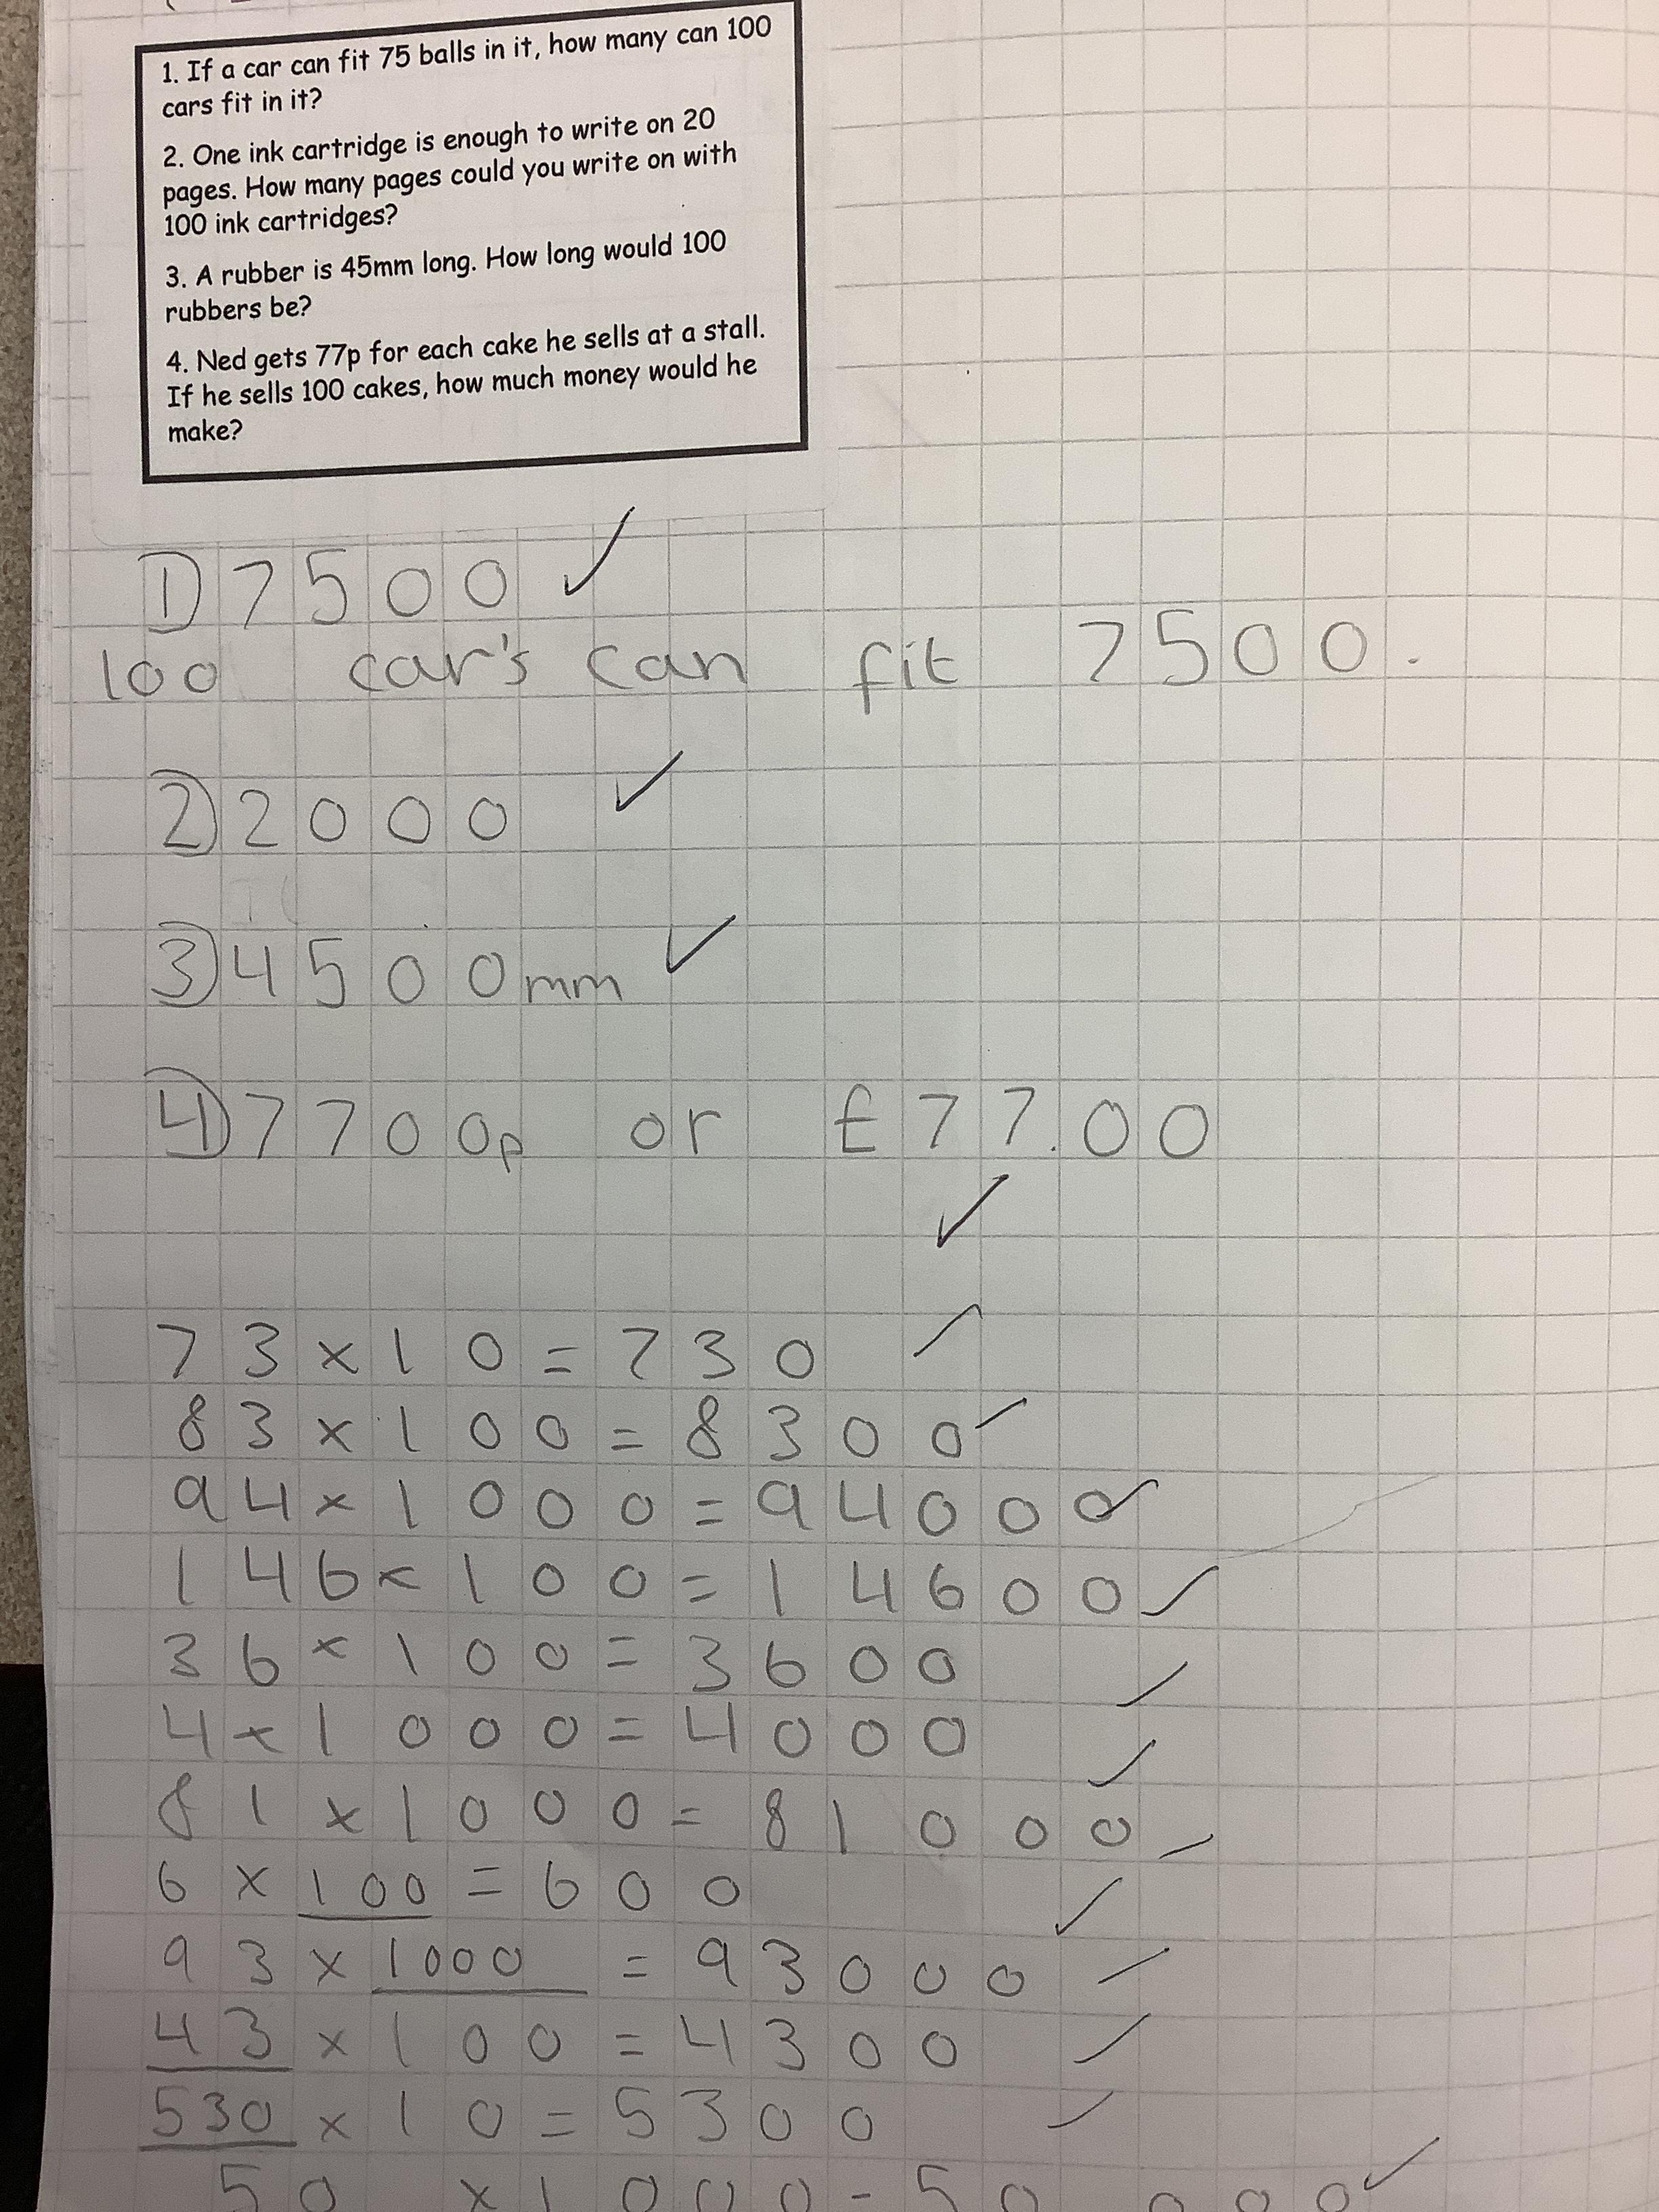 1. If a car can fit 75 balls in it, how many can 100
cars fit in it?
2. One ink cartridge is enough to write on 20
pages. How many pages could you write on with
100 ink cartridges?
3. A rubber is 45mm long. How long would 100
rubbers be?
4. Ned gets 77p for each cake he sells at a stall.
If he sells 100 cakes, how much money would he
make?
1) 7500 ✓
100 car's can fit 7500.
2) 2000 ✓
3) 4500mm ✓
4) 7700p or £77.00
✓
73 × 10 = 730 ✓
83 × 100 = 8300 ✓
94 × 1000 = 94000 ✓
146 × 100 = 14600 ✓
36 × 100 = 3600 ✓
4 × 1000 = 4000 ✓
81 × 1000 = 81000 ✓
6 × 100 = 600 ✓
93 × 1000 = 93000 ✓
43 × 100 = 4300 ✓
530 × 10 = 5300 ✓
50 × 1000 = 50000 ✓